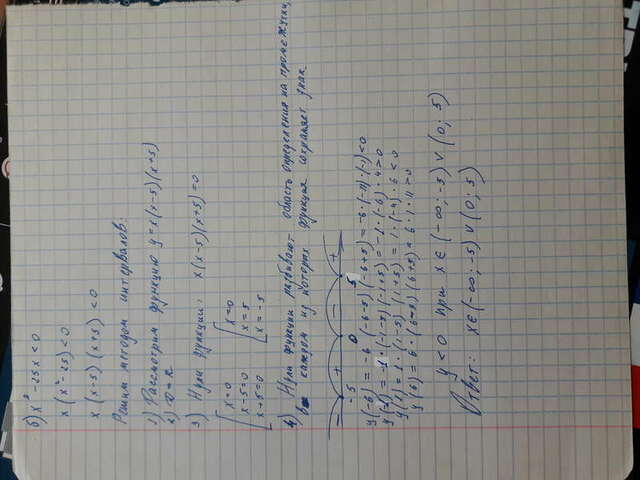 б) x³ - 25x < 0
x (x² - 25) < 0
x (x-5) (x+5) < 0
Решим методом интервалов:
1) Рассмотрим функцию y = x(x-5)(x+5)
2) D = R
3) Нули функции: x(x-5)(x+5) = 0
x=0 x=0
x-5=0 x=5
x+5=0 x=-5
4) Нули функции разбивают область определения на промежутки,
в каждом из которых функция сохраняет знак
- + - +
-5 0 5
y(-6) = -6 · (-6-5) (-6+5) = -6 · (-11) · (-1) < 0
y(-1) = -1 · (-1-5) (-1+5) = -1 · (-6) · 4 > 0
y(1) = 1 · (1-5) (1+5) = 1 · (-4) · 6 < 0
y(6) = 6 · (6-5) (6+5) = 6 · 1 · 11 > 0
y < 0 при x ∈ (-∞; -5) ∪ (0; 5)
Ответ: x ∈ (-∞; -5) ∪ (0; 5)